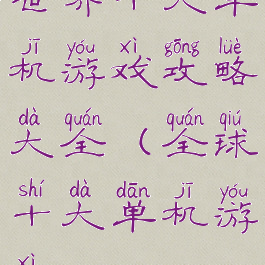 jī yóu xì gōng lüè
机游戏攻略
dà quán quán qiú
大全(全球
shí dà dān jī yóu
十大单机游
xì